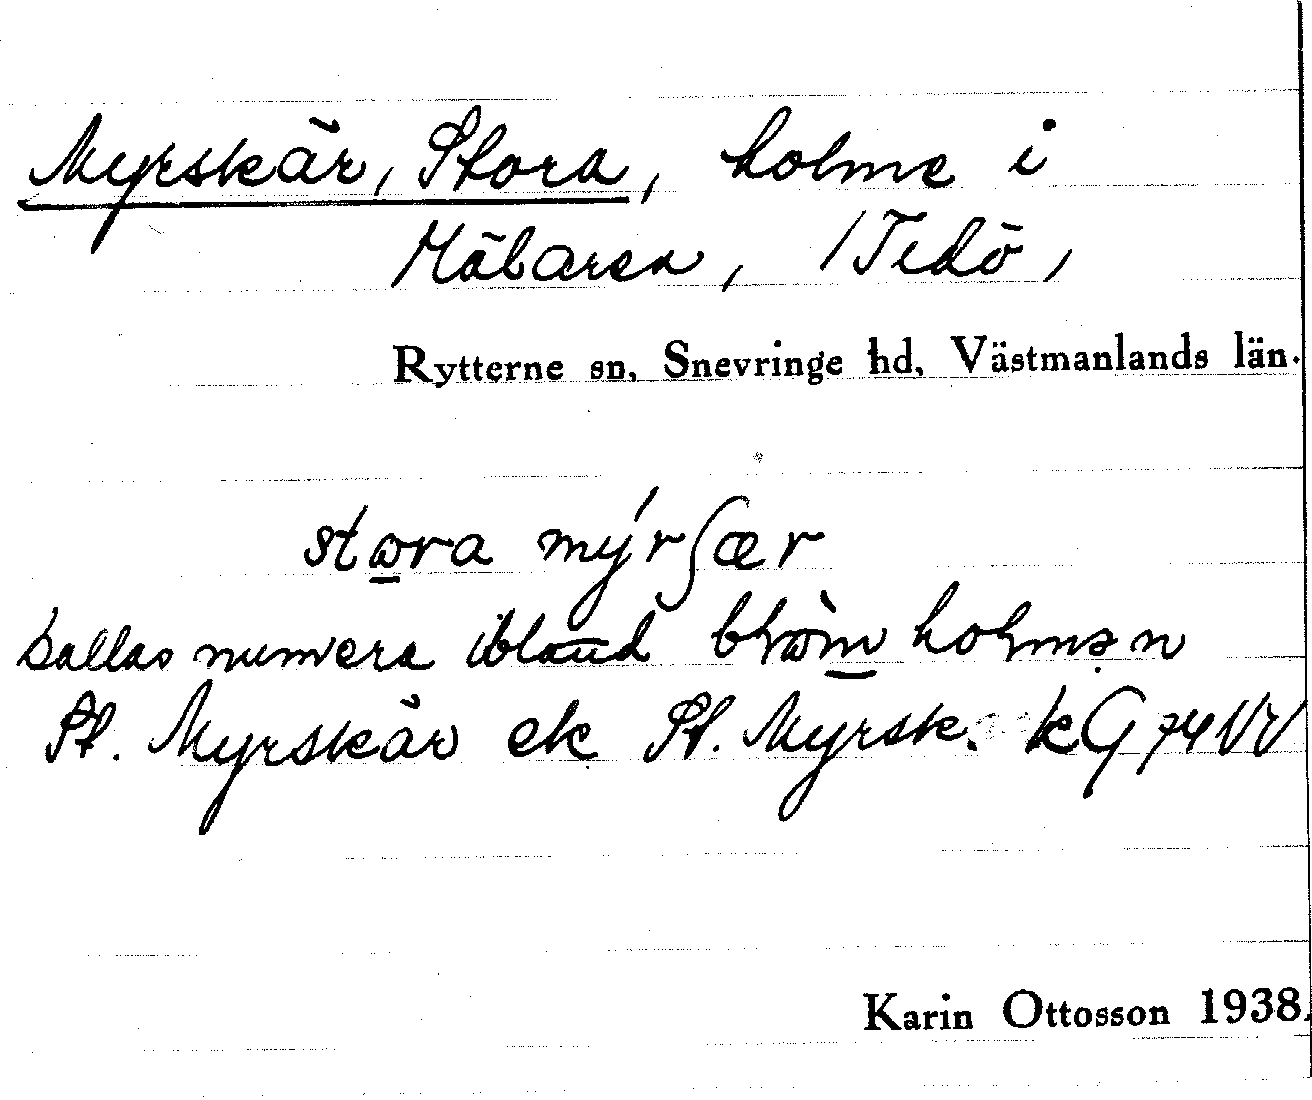 Myrskär, Stora, holme i
Mälaren, /Tidö/
Rytterne sn, Snevringe hd, Västmanlands län.
stωra mýrʃær
kallas numera ibland holmən
St. Myrskär ek St. Myrsk. kG 74 VV
Karin Ottosson 1938.